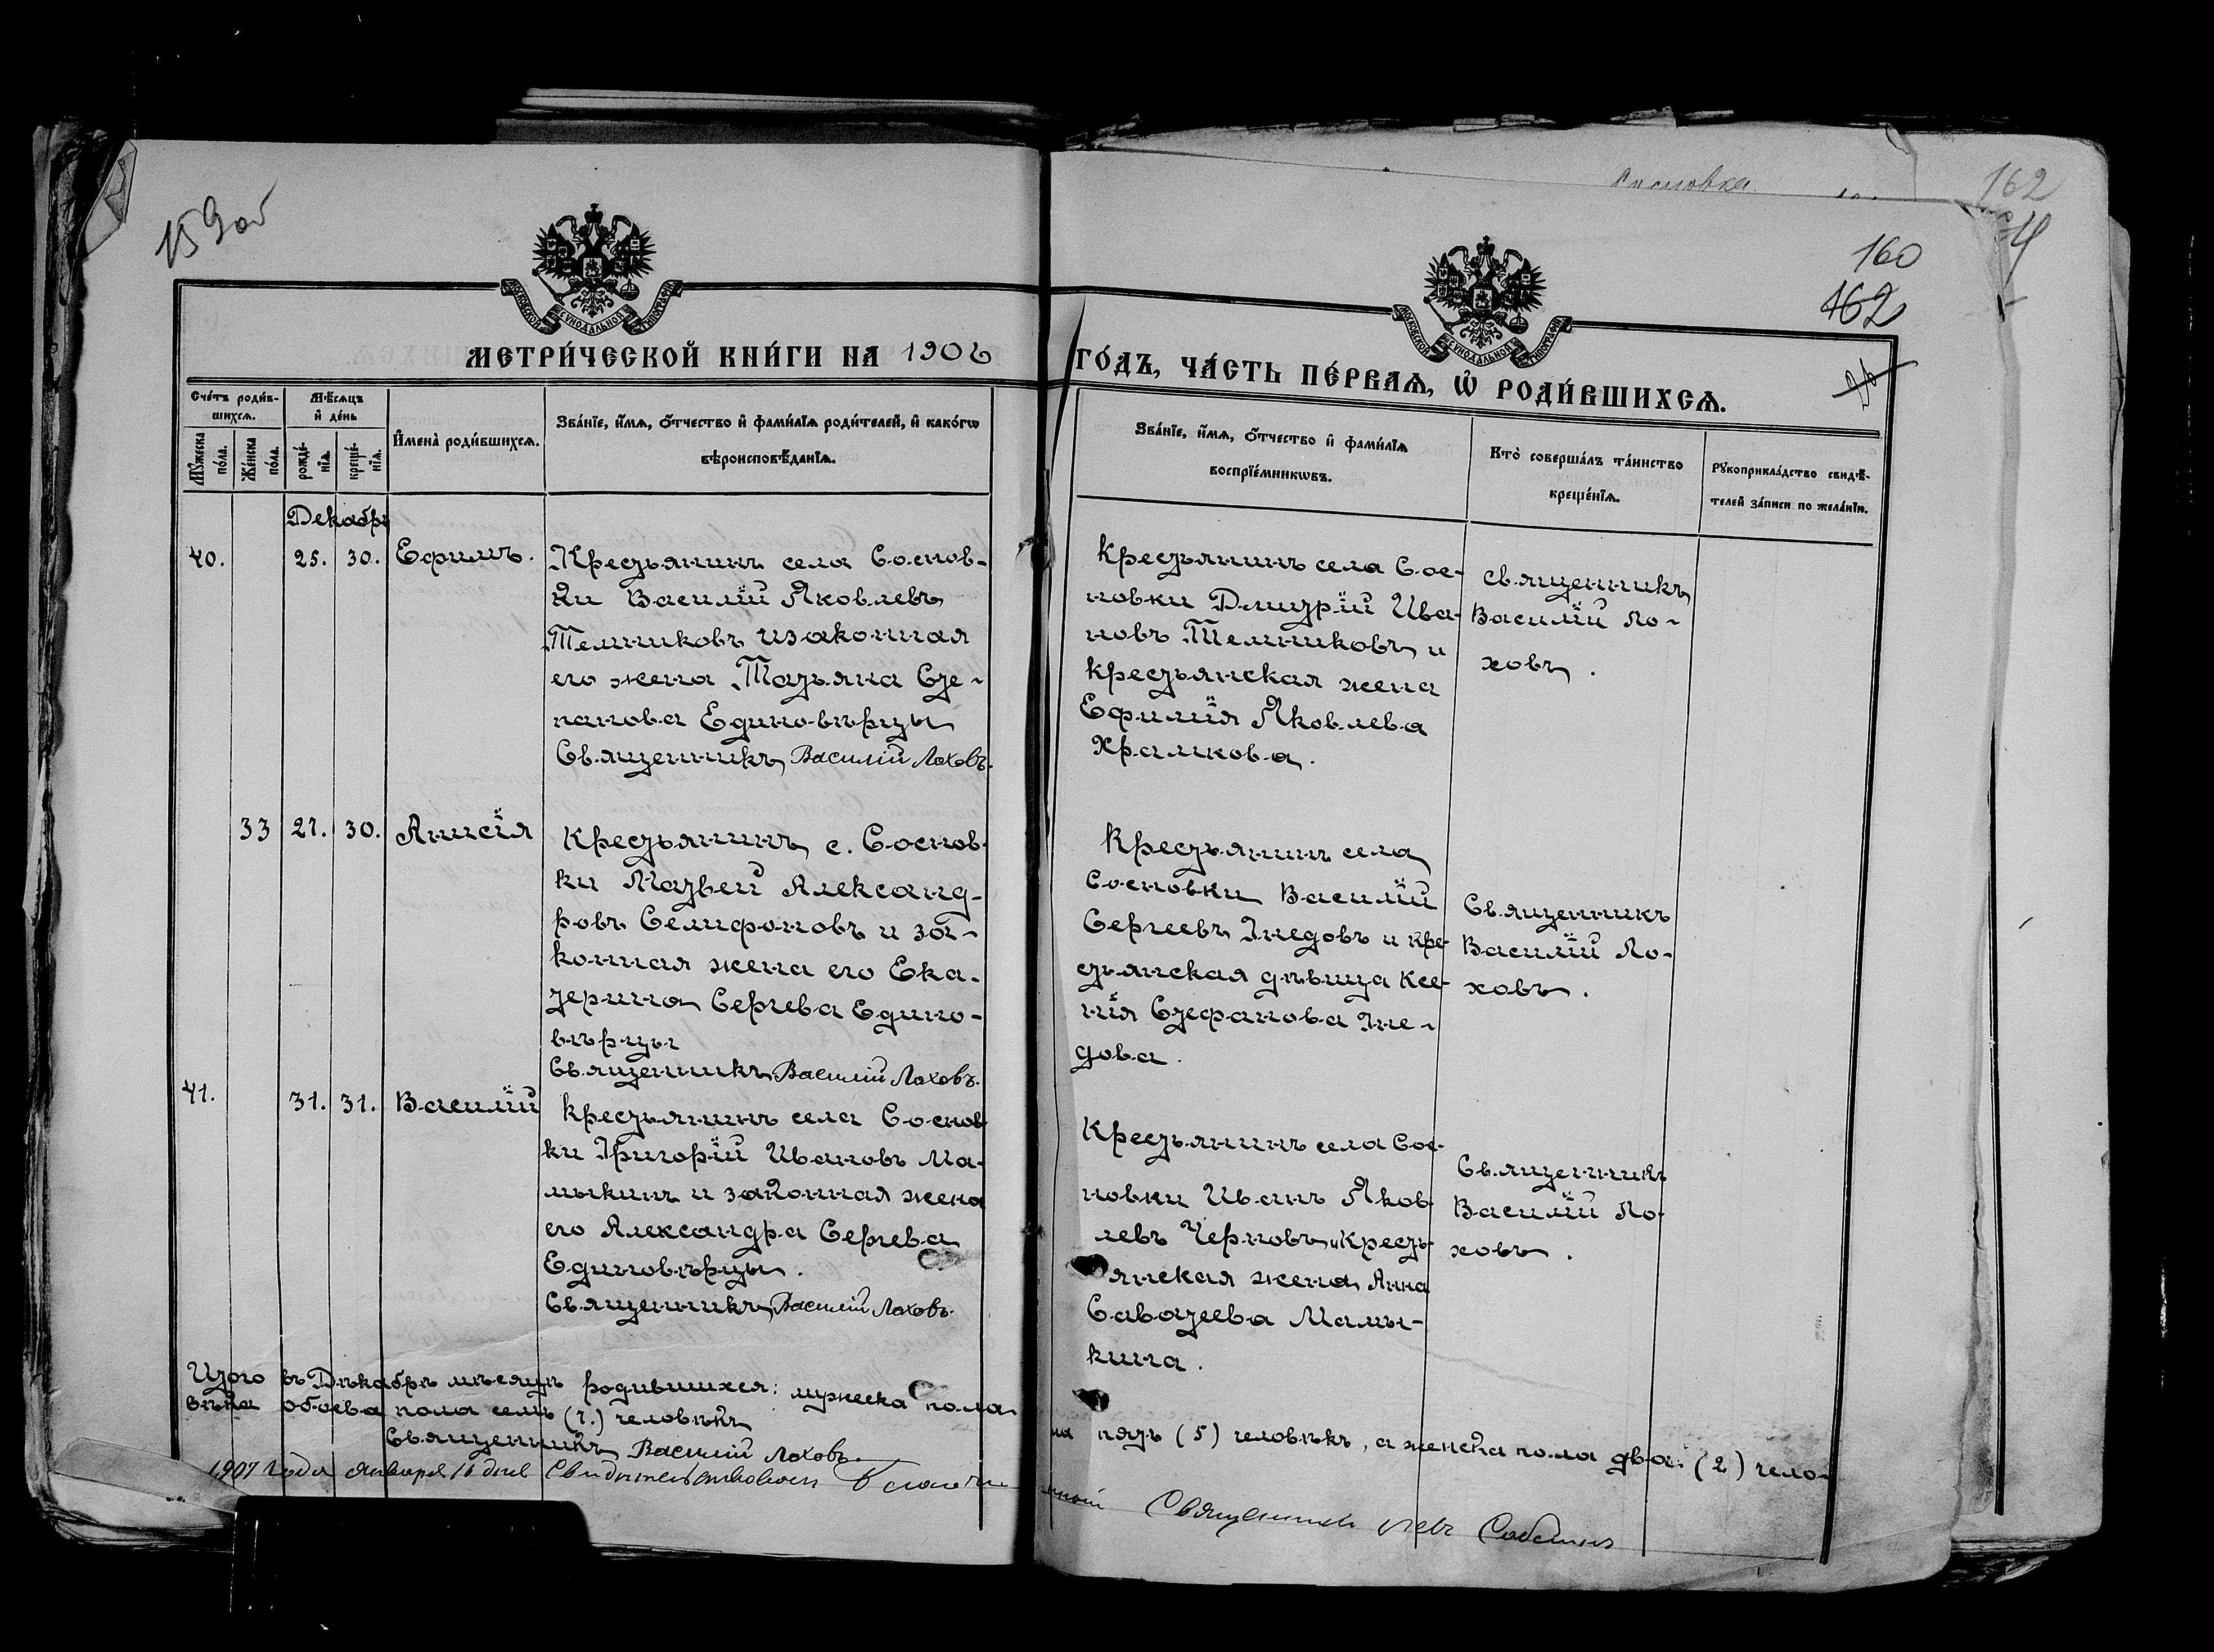 159 об
Сосновка
162
160
162
МОСКОВСКОЙ СѴНОДАЛЬНОЙ ТИПОГРАФІИ
МОСКОВСКОЙ СѴНОДАЛЬНОЙ ТИПОГРАФІИ
МЕТРИ́ЧЕСКОЙ КНИ́ГИ НА 1906
ГО́ДЪ, ЧА́СТЬ ПЕ́РВАѦ, Ѡ҆ РОДИ́ВШИХСѦ.
Сче́тъ роди́в-
шихсѧ.
Мꙋ́жеска
по́ла.
Же́нска
по́ла.
Мѣ́сѧцъ
и҆ де́нь
рожде́-
нїѧ.
креще́-
нїѧ.
И҆мена̀ роди́вшихсѧ.
Зва́нїе, и҆́мѧ, ѻ҆́тчество и҆ фами́лїѧ роди́телей, и҆ како́гѡ
вѣроисповѣ́данїѧ.
Зва́нїе, и҆́мѧ, ѻ҆́тчество и҆ фами́лїѧ
воспрїе́мникѡвъ.
Кто̀ соверша́лъ та́инство
креще́нїѧ.
Рꙋкоприкла́дство свидѣ́-
телей за́писи по жела́нїю.
Декабрь
40.
25.
30.
Ефимъ.
Крестьянинъ села Соснов-
ки Василій Яковлевъ
Темниковъ изаконная
его жена Татьяна Сте-
панова Единовѣрцы
Священникъ Василій Лоховъ.
Крестьянинъ села Сос-
новки Дмитрій Ива-
новъ Темниковъ и
крестьянская жена
Ефимія Яковлева
Храмкова.
священникъ
Василій Ло-
ховъ.
33
27.
30.
Анисія
Крестьянинъ с. Соснов-
ки Матвей Александ-
ровъ Селифоновъ и за-
конная жена его Ека-
терина Сергева Едино-
вѣрцы
Священникъ Василій Лоховъ.
Крестьянинъ села
Сосновки Василій
Сергеевъ Гнедовъ и кре-
стьянская дѣвица Ксе-
нія Стефанова Гне-
дова.
Священникъ
Василій Ло-
ховъ.
41.
31.
31.
Василій
Крестьянинъ села Соснов
ки Григорій Ивановъ Ма-
мыкинъ и законная жена
его Александра Сергева
Единовѣрцы.
Священникъ Василій Лоховъ.
Крестьянинъ села Сос-
новки Иванъ Яков
левъ Черновъ и кресть-
янская жена Анна
Саватеева Мамы-
кина.
Священникъ
Василій Ло-
ховъ.
Итого въ Дѣкабрѣ мѣсяцѣ родившихся: мужеска пола
на пять (5) человѣкъ, а женска пола два: (2) чело-
вѣка обоева пола семь (7.) человѣкъ
Священникъ Василій Лоховъ.
1907 года января 16 дня Свидѣтельствовалъ Благочи
нный Священникъ Левъ